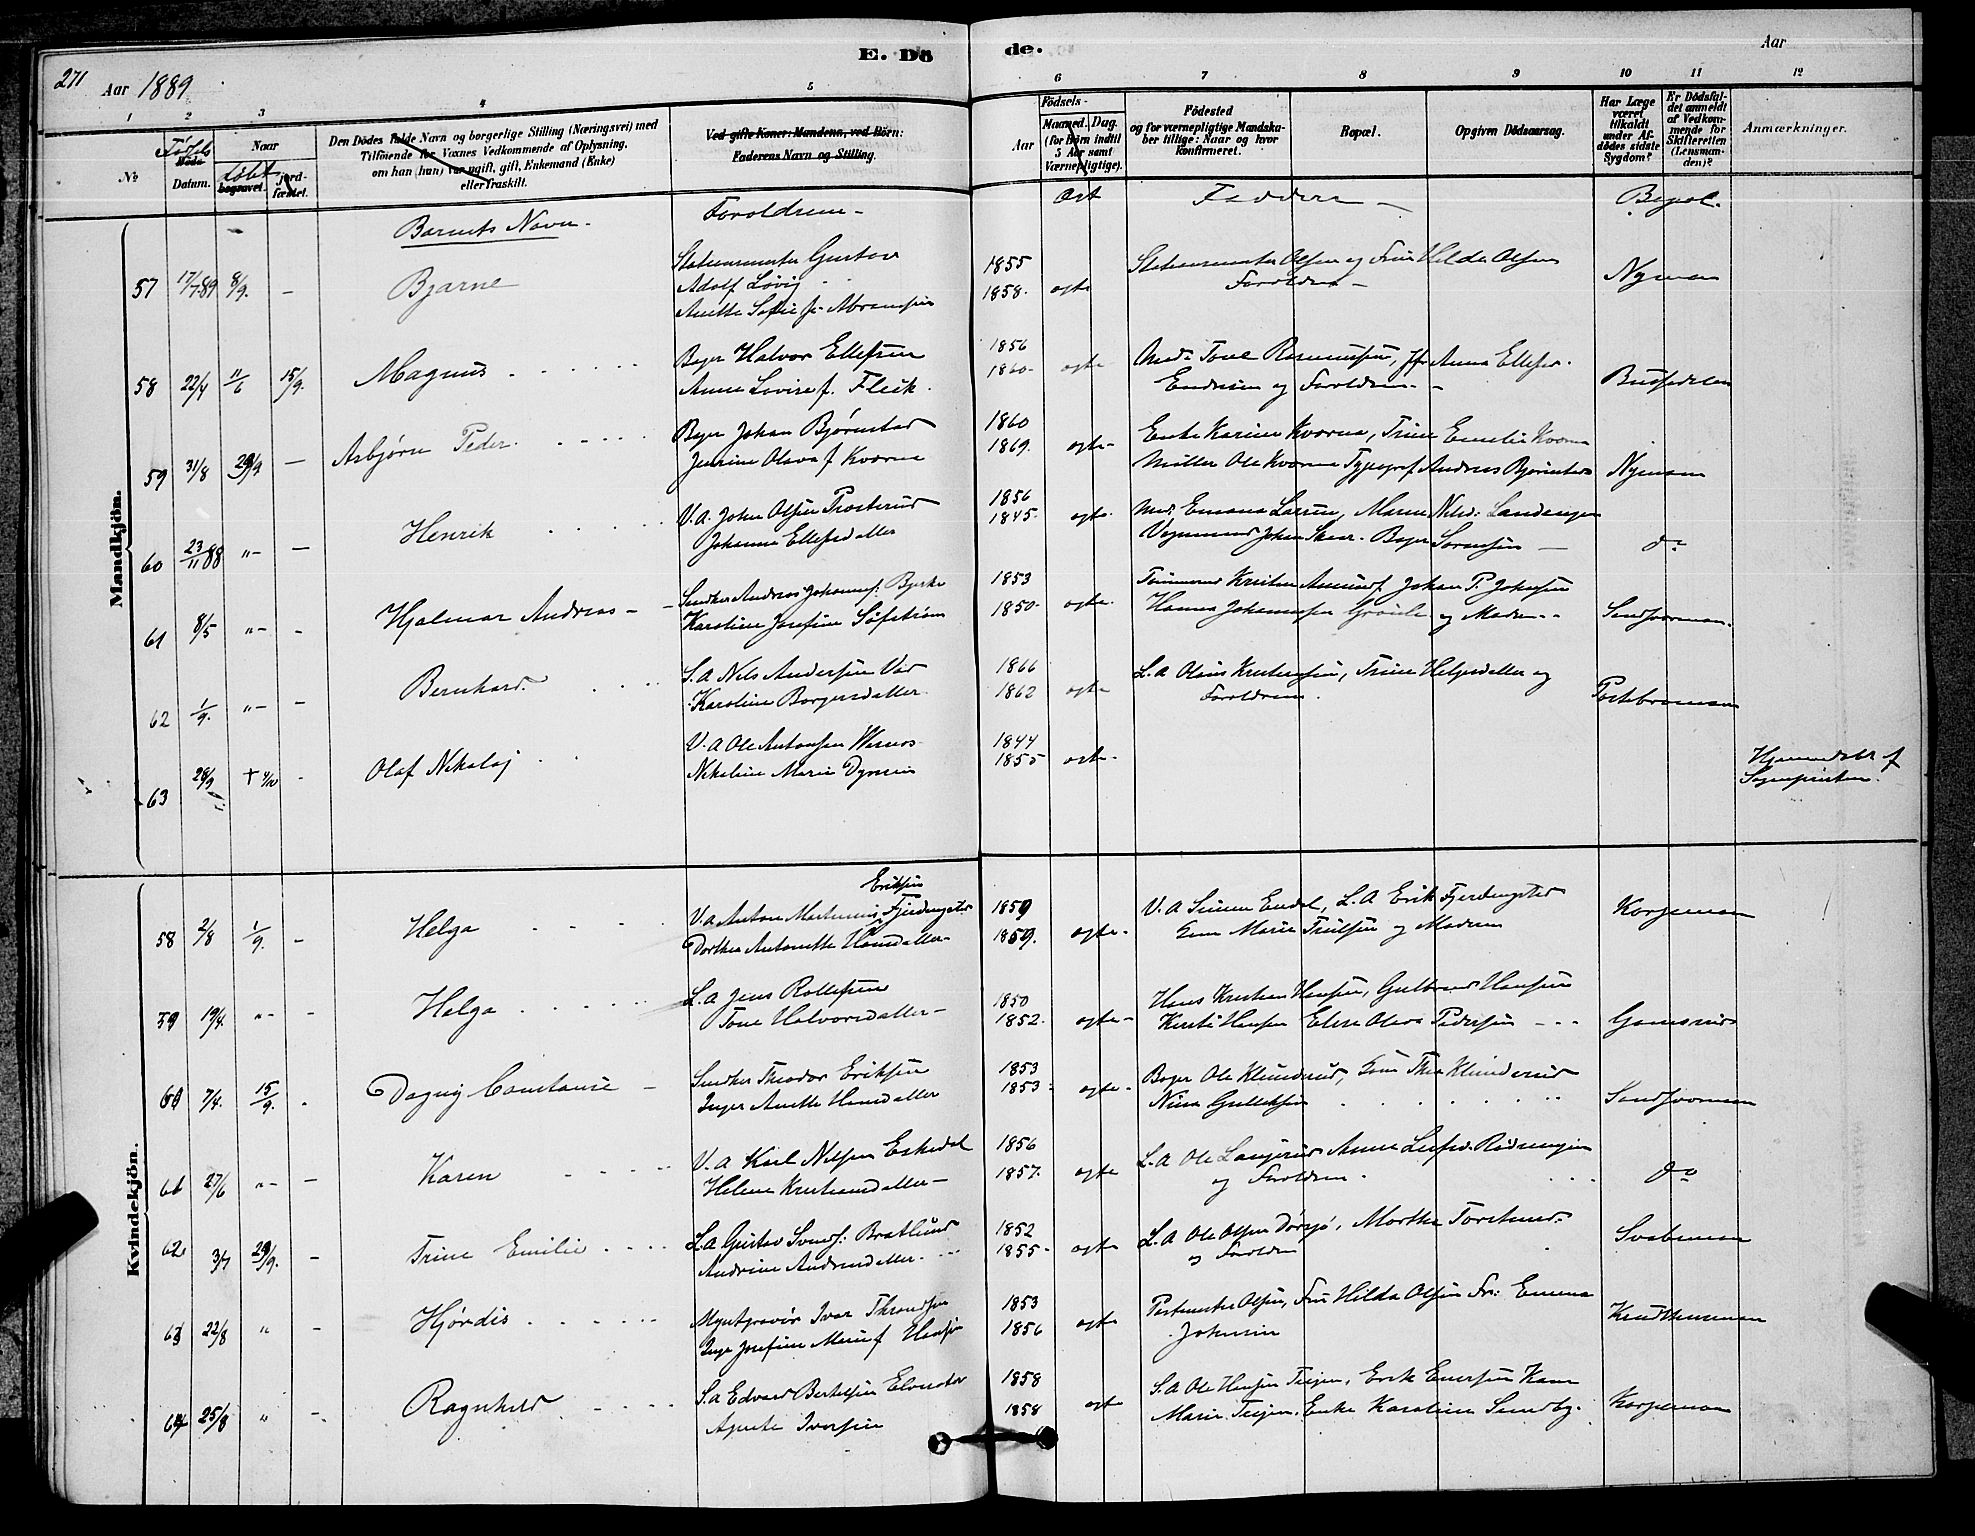 E. Dö
de.
Aar
271
Aar 1889
1
2
3
4
5
6
7
8
9
10
11
12
No
Fødsels
Døds
Datum.
Naar
døbt
begravet.
jordfæstet.
Den Dödes fulde Navn og borgerlige Stilling (Næringsvei) med
Tilföiende for Voxnes Vedkommende af Oplysning,
om han (hun) var ugift, gift, Enkemand (Enke)
eller fraskilt.
Ved gifte Koner: Mandens, ved Börn:
Faderens Navn og Stilling.
Födsels-
Aar
Maaned. Dag.
(for Börn indtil
5 Aar samt
Værnepligtige).
Födested
og for værnepligtige Mandskaber
tillige: Naar og hvor
konfirmeret.
Bopæl.
Opgiven Dödsaarsag.
Har Læge
været
tilkaldt
under Afdödes
sidste
Sygdom?
Er Dödsfaldet
anmeldt
af Vedkommende
for
Skifteretten
(Lensmanden)?
Anmærkninger.
Barnets Navn.
Forældrene
Faddere
Bopæl.
Mandkjön.
57 17/7 89 8/9. – Bjarne
Stationsmester Gustav
Adolf Løvig
Anette Sofie f. Abramsen
1855
1858. ægte
Stationsmester Olsen og Fru Hilda Olsen
Forældrene –
Nymoen
58 22/4 11/6 15/9. Magnus
Bager Halvor Ellefsen
Anne Lovise f. Fleik.
1856
1860 ægte
og Forældrene
59 31/8 29/9 – Asbjørn Peder
Bager Johan Bjørnstad
Jensine Olava f. Kværne
1860
1869. ægte
Enke Karine Kværne, Trine Emilie Kværne
Møller Ole Kværne Typograf Andreas Bjørnstad
Nymoen
60 23/11 88 „– – Henrik
V.A. Johan Olsen
Johanne Ellefsdatter
1856
1845 ægte
Johan Skar. Bager Sørensen
do
61 8/5 „– – Hjalmar Andreas
Snedker Andreas Johannes. Bjerke
Karoline Josefine Søfstrøm
1853
1850 ægte
Johan P. Johnsen
Hanna Johannesen og Moderen
Sandsværmoen.
62 1/9. „– – Bernhard
S.A. Nils Andersen Vad
Karoline Borgersdatter
1866
1862 ægte
L.A. Olaus Kristensen, Trine Helgesdatter og
Forældrene.
63 28/9 + Olaf Nikolaj
V.A. Ole Antonsen
Nikoline Marie
1844
1855 ægte
Hjemmedøbt af
Sognepresten.
Kvindekjön.
58 2/8 1/9. – Helga
Eriksen
V.A. Anton Martinius Fjerdingstad
Dorthea Antonette Hansdatter
1859
1859. ægte
V.A. Simen Endal, L.A. Erik Fjerdingstad
Marie Truelsen og Moderen
Korpemoen
59 19/4. „– – Helga
L.A. Jens Rollefsen
Tone Halvorsdatter
1850
1852. ægte
Hans Kristian Hansen, Gulbrand Hansen
Kirsti Hansen Elise Olava Pedersen
Gamsrud
60 7/4. 15/9. Dagny Constanse
Snedker Theodor Eriksen
Inger Anette Hansdatter
1853
1853 ægte
Bager Ole Klunderud, Kone Thea Klunderud
Nina Gulliksen
Sandsværmoen
61 27/6 „– – Karen
V.A. Karl Nilsen Eskedal
Helene Kristiansdatter
1856
1857. ægte
L.A. Ole Langerud Anne
og Forældrene.
do
62 3/7 29/9. – Trine Emilie
L.A. Gustav Svends. Bratlund
Andrine Andersdatter
1852
1855 ægte
L.A. Ole Olsen Dørsjø, Marthe Torstensd.
og Forældrene
Svabemoen
63 22/8 „ – Hjørdis
Myntgravør Ivar Throndsen
Inga Josefine Marie f. Hansen
1853
1856 ægte
Postmester Olsen, Fru Hilda Olsen Fr: Emma
Johnsen
64 25/8 „ – Ragnhild
S.A. Edvard Bertelsen Elvestad
Agnete Iversen
1858
1858 ægte
S.A. Ole Hansen Teigen, Erik Enersen Kone
Marie Teigen, Enke Karoline Sundby.
Korpemoen